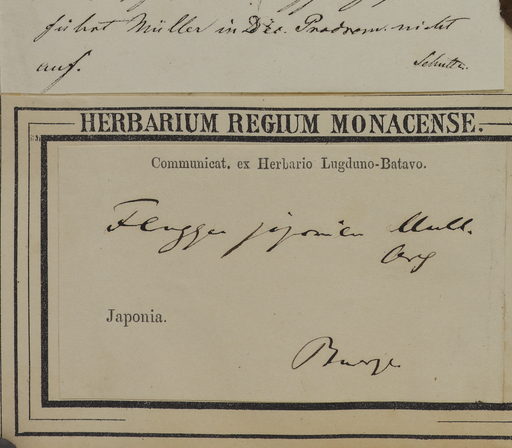 führt Müller in Dec. Prodrom. nicht
auf.
HERBARIUM REGIUM MONACENSE.
Communicat. ex Herbario Lugduno-Batavo.
Fluggea japonica Mull.
Arg
Japonia.
Burge